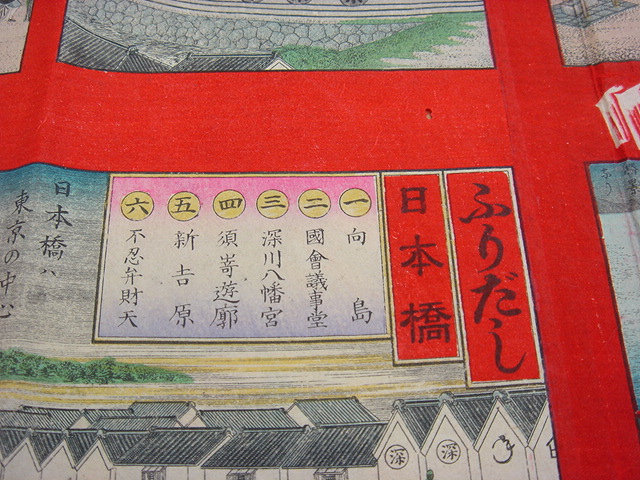 ふりだし
日本橋
一 向島
二 國會議事堂
三 深川八幡宮
四 須嵜遊廓
五 新吉原
六 不忍弁財天
日本橋ハ
東京の中心
深
深